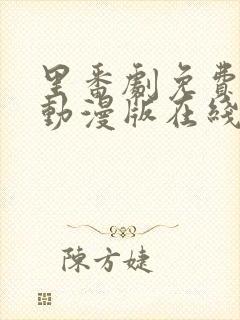 里番劇免費
動漫版在綫
陳方婕